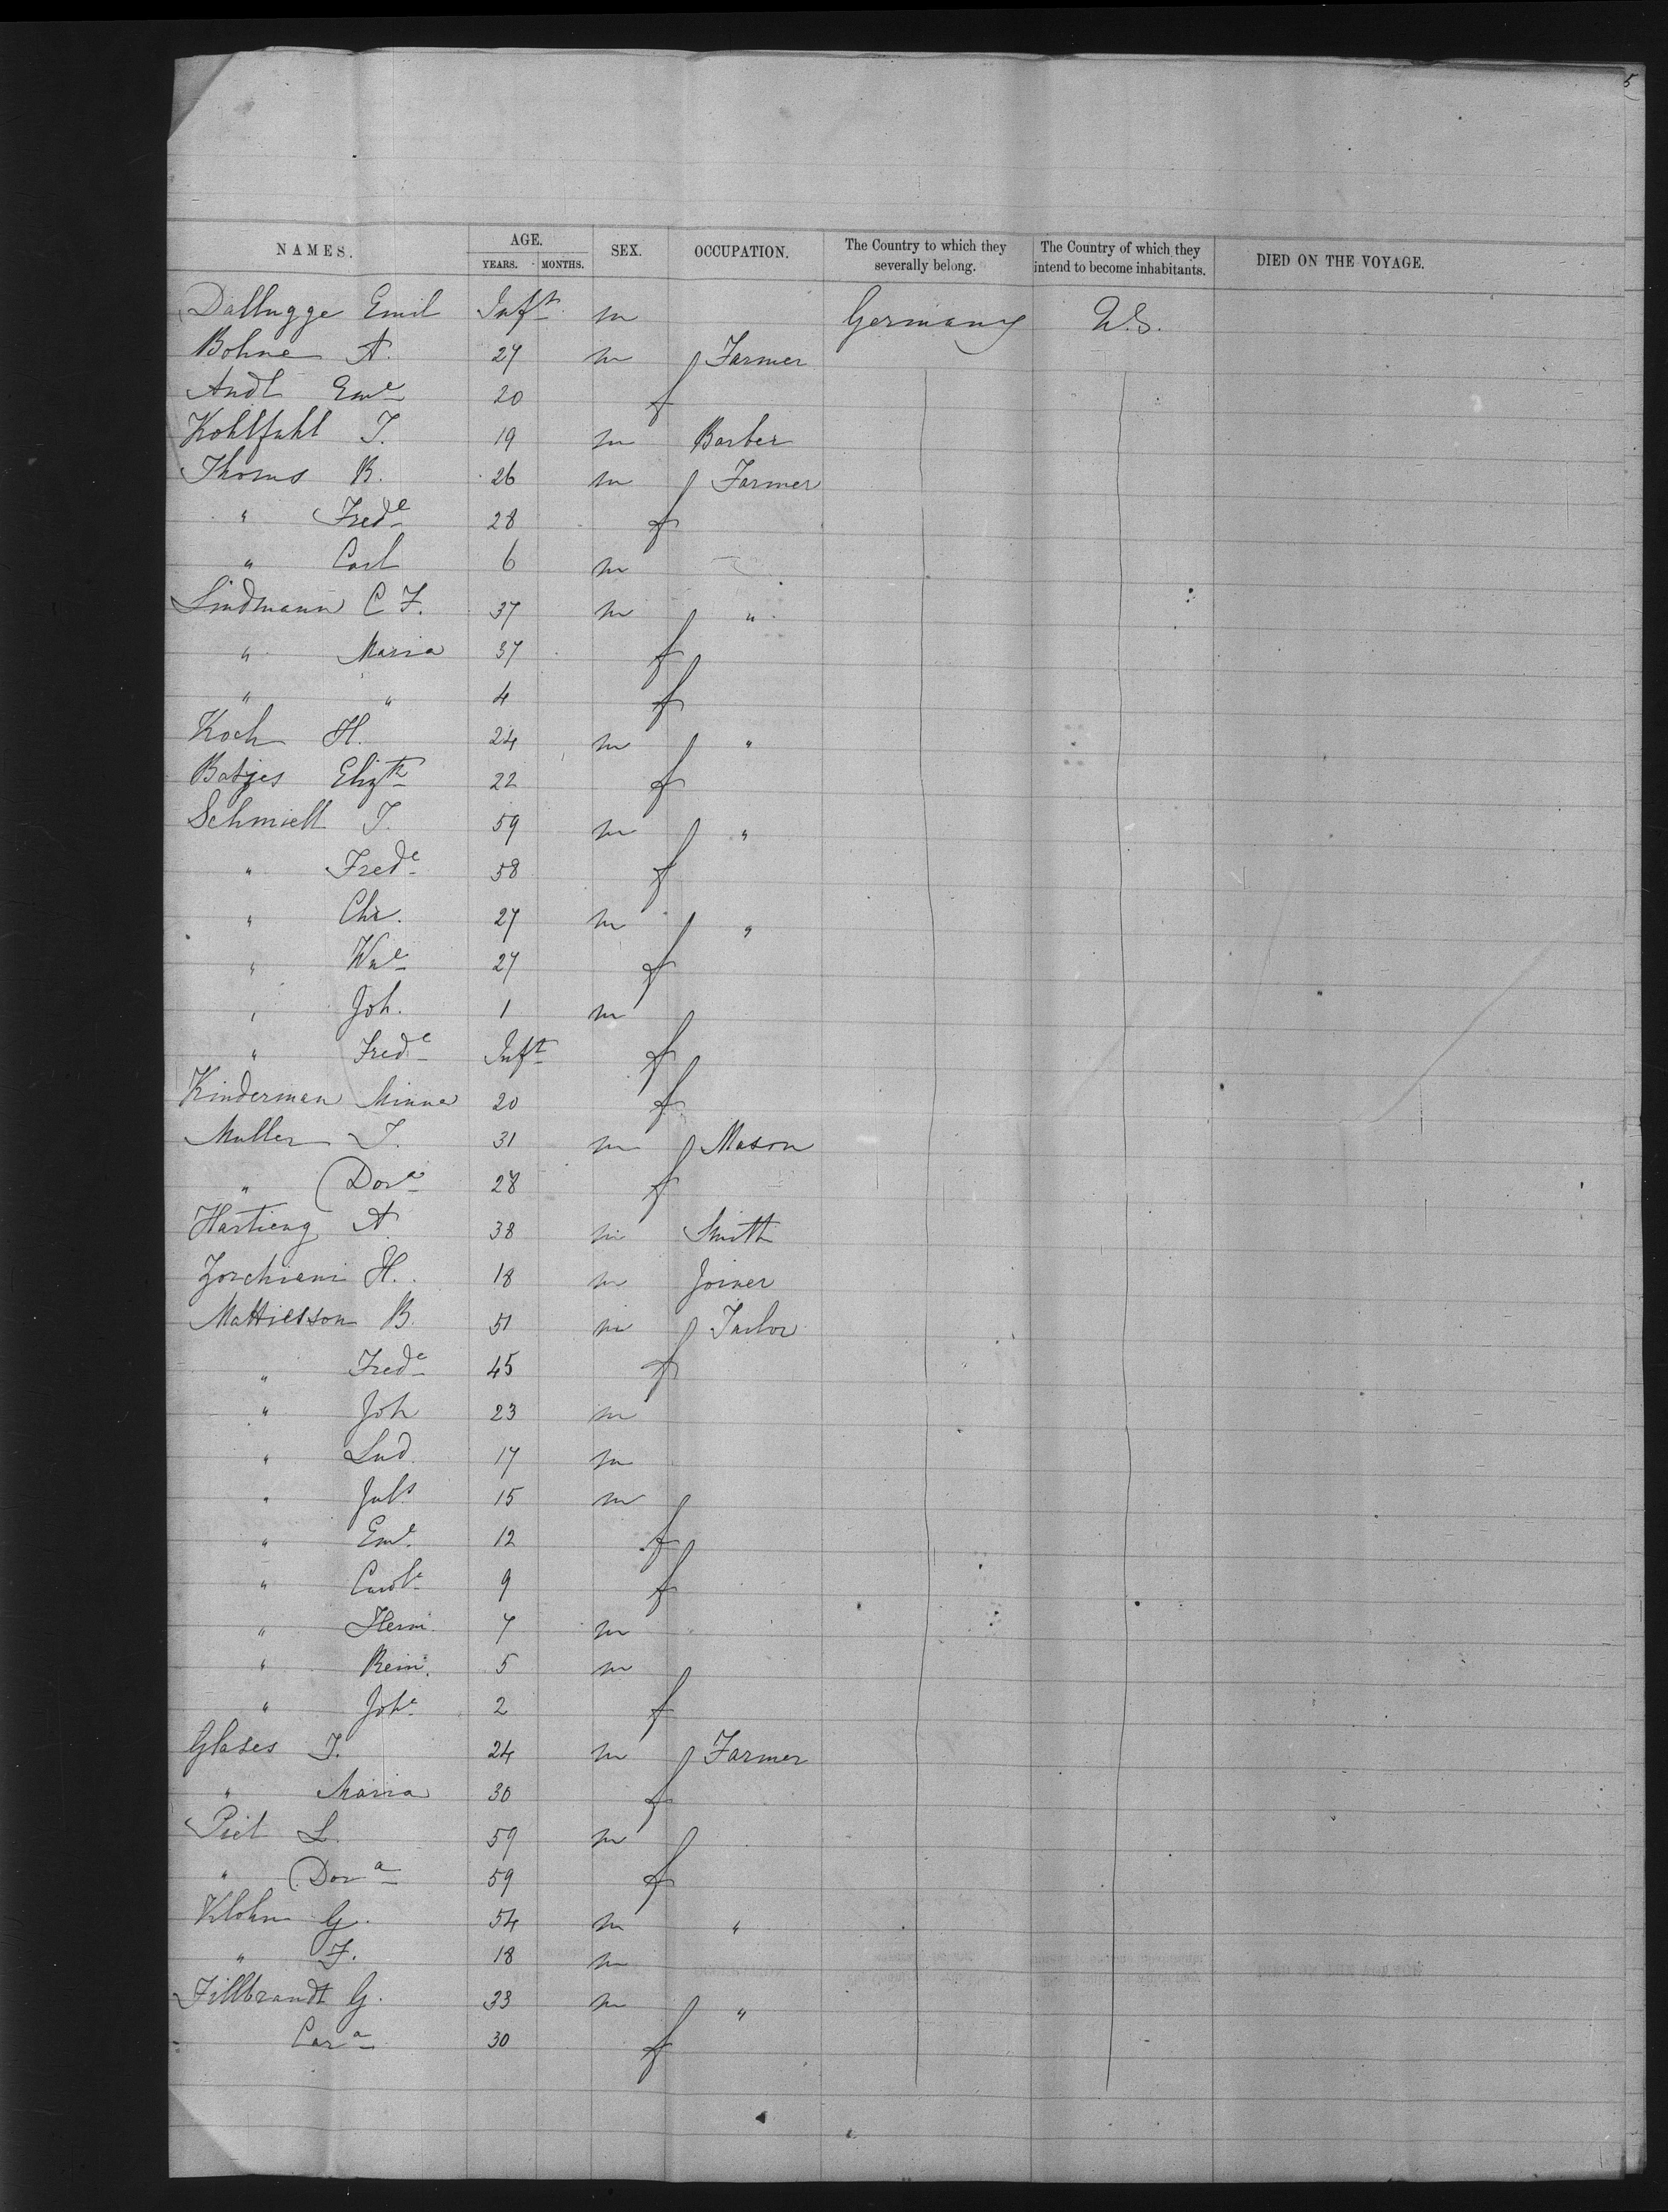 5
NAMES. AGE. SEX. OCCUPATION. The Country to which they severally belong. The Country of which they intend to become inhabitants. DIED ON THE VOYAGE.
YEARS. MONTHS.
Dallugge Emil Inft m Germany U.S.
Bohne A. 27 m Farmer
Andt Eme 20 f
Kohlfahl J. 19 m Barber
Thoms B. 26 m Farmer
" Frede 28 f
" Carl 6 m
Lindmann C F. 37 m "
" Maria 37 f
" " 4 f
Koch H. 24 m "
Batjes Elizth 22 f
Schmiell J. 59 m "
" Frede 58 f
" Chr. 27 m "
" Wme 27 f
" Joh. 1 m
" Frede Inft f
Kinderman Minna 20 f
Muller J. 31 m Mason
" Dore 28 f
Hartieng A. 38 m Smith
Zorchieni H. 18 m Joiner
Mattiesson B. 51 m Tailor
" Frede 45 f
" Joh 23 m
" Lud. 17 m
" Juls 15 m
" Eme 12 f
" Carole 9 f
" Herm. 7 m
" Rein. 5 m
" Johe 2 f
Glases J. 24 m Farmer
" Maria 30 f
Piel L. 59 m
" Dora 59 f
Klohn G. 54 m "
" F. 18 m
Fillbrandt G. 33 m "
Cara 30 f